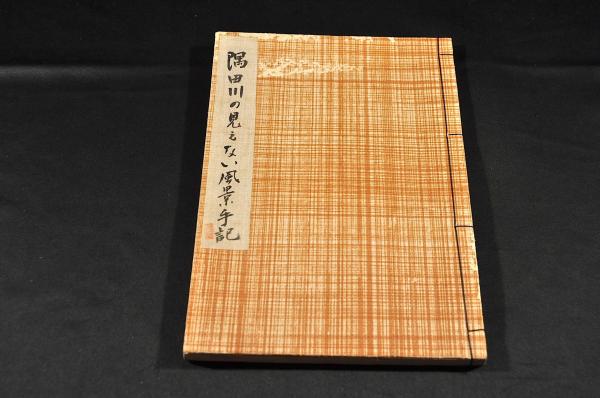 隅田川の見えない風景手記